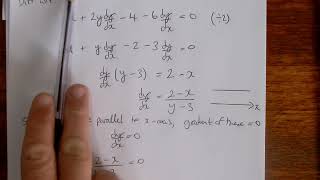 + 2y dy/dx - 4 - 6 dy/dx = 0 (÷2)
+ y dy/dx - 2 - 3 dy/dx = 0
dy/dx (y - 3) = 2 - x
dy/dx = (2 - x)/(y - 3)
x
parallel to x-axis, gradient of these = 0
dy/dx = 0
2 - x = 0